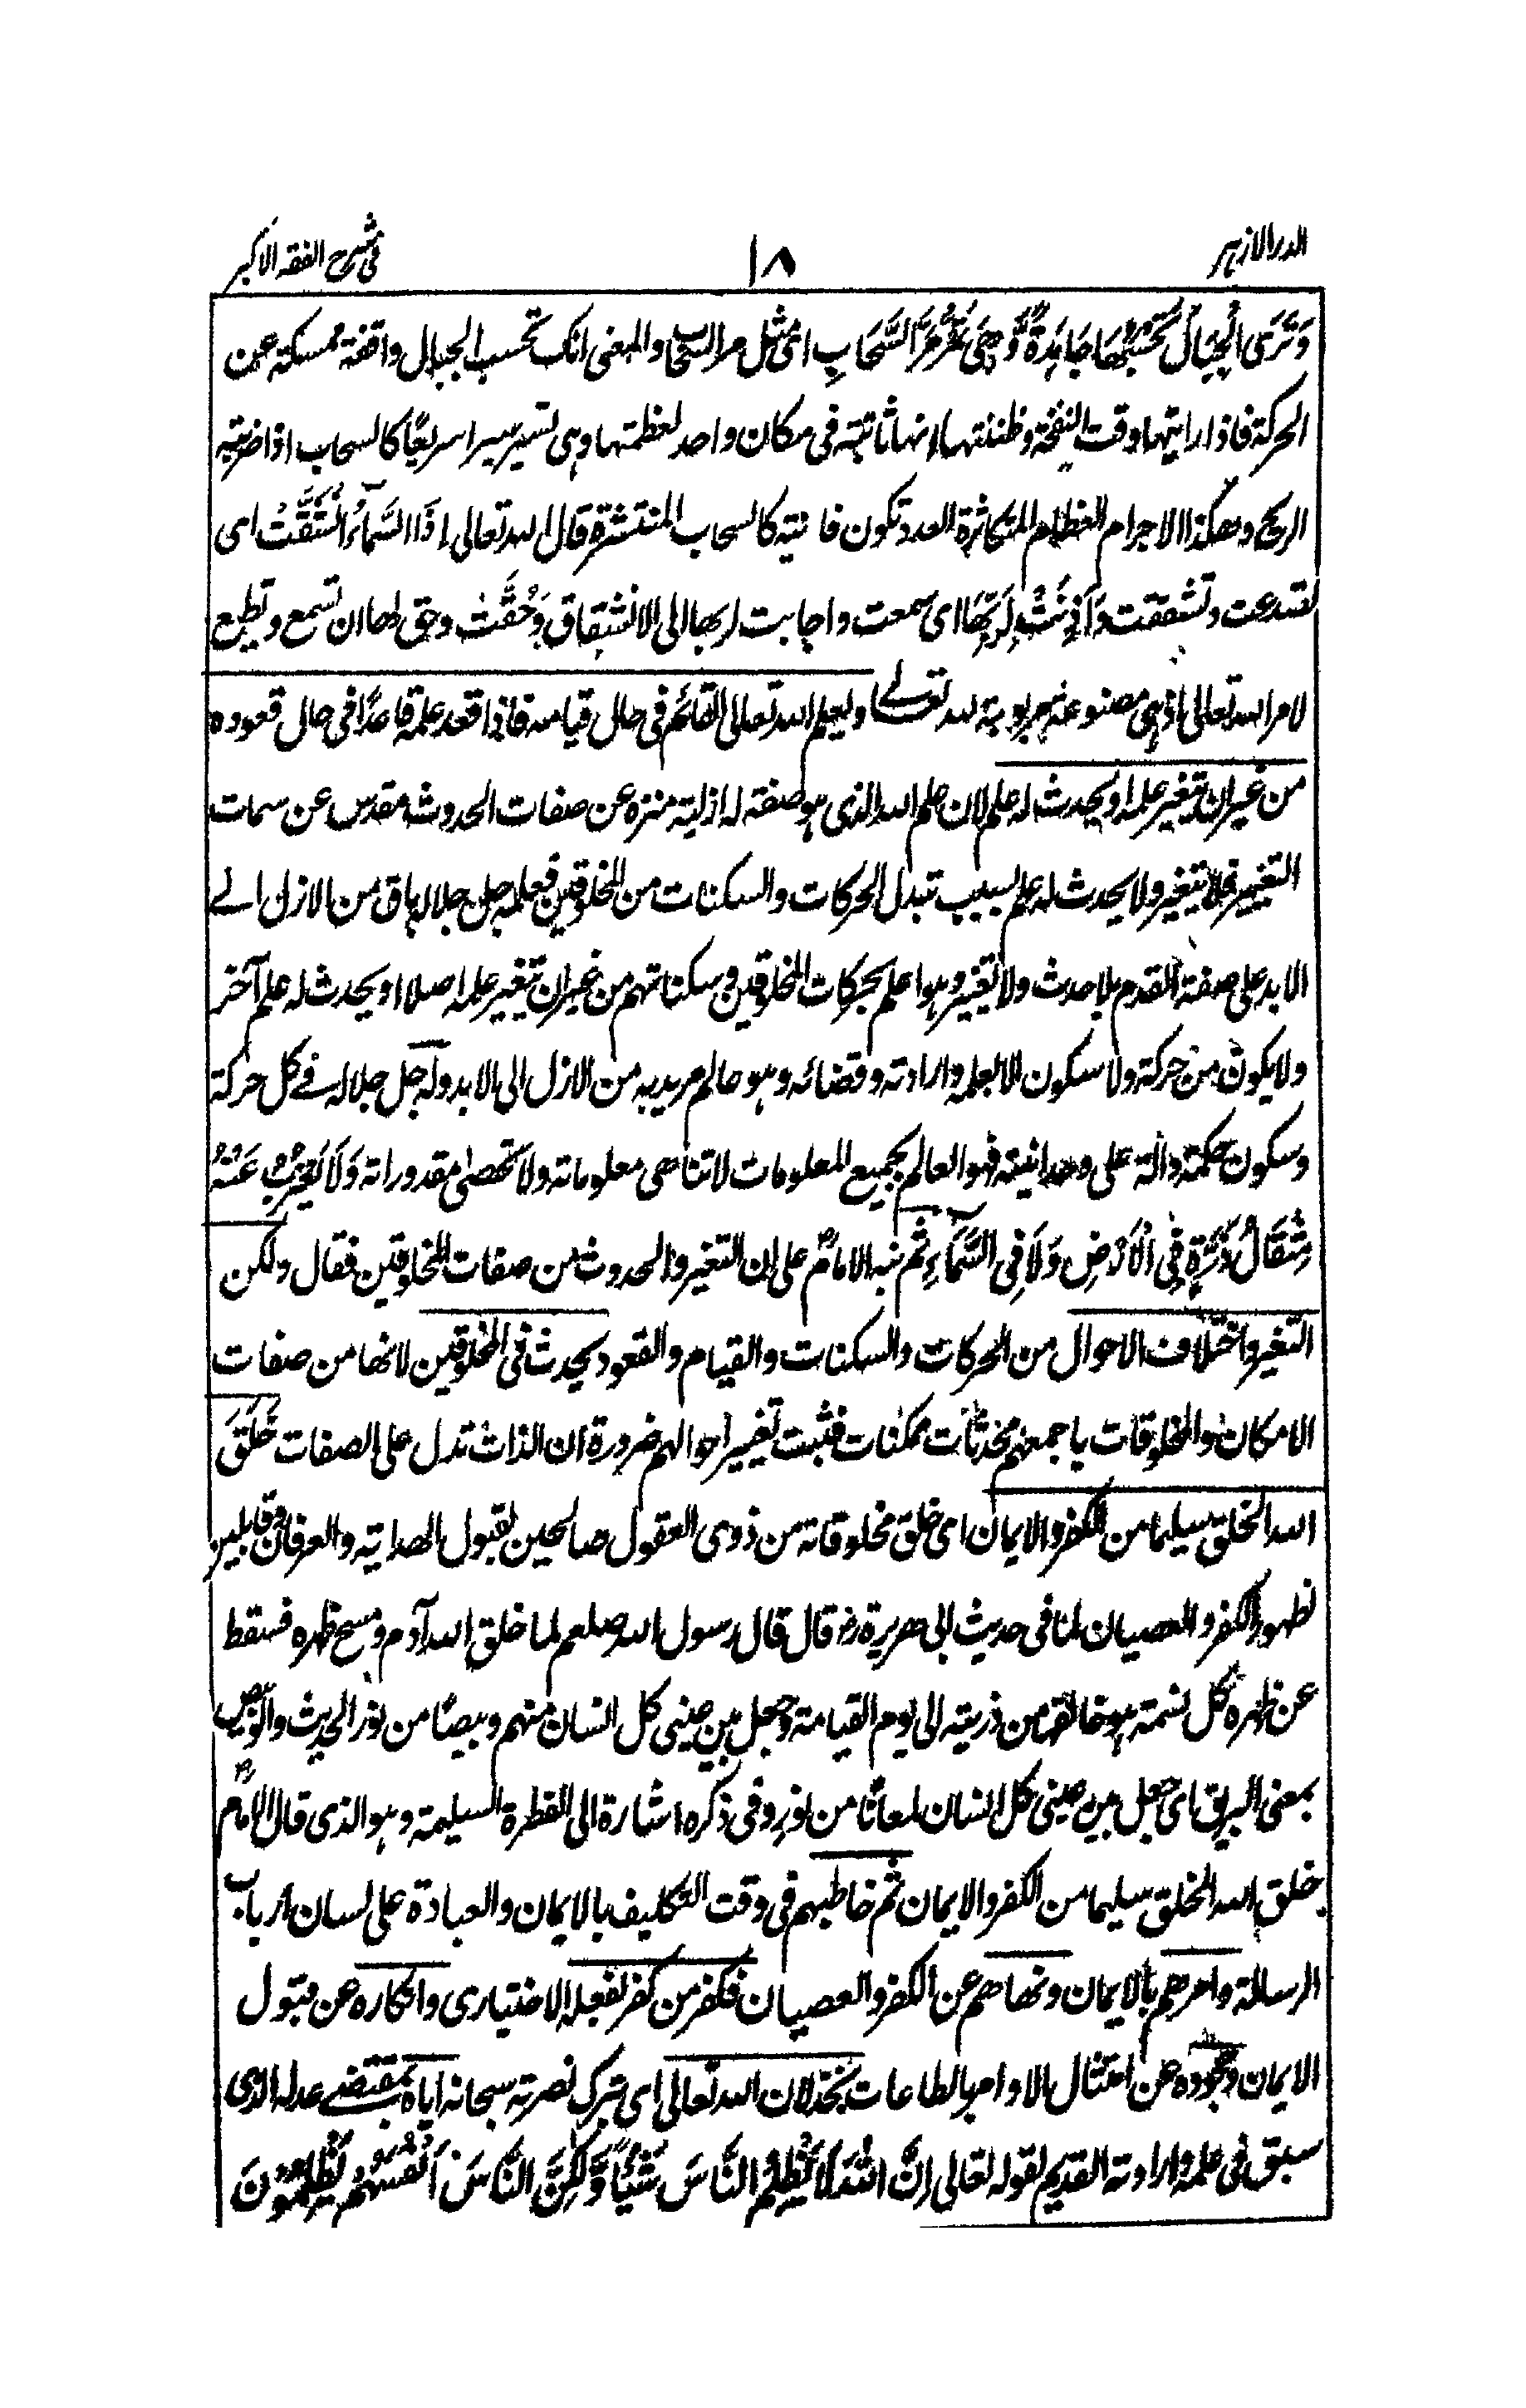 الدر الازهر ١٨ فی شرح الفقه الاکبر
وَتَرَى الْجِبَالَ تَحْسَبُهَا جَامِدَةً وَّهِيَ تَمُرُّ مَرَّ السَّحَابِ ای مثل مر السحاب والمعنی انک تحسب الجبال واقفة ممسکة عن
الحرکة فاذا رایتها وقت النفخة وظننتها انها ثابتة فی مکان واحد لعظمتها وهی تسیر سیرا سریعًا کالسحاب اذا ضربته
الریح وهکذا الاجرام العظام المتکاثرة العدد تکون فانیة کالسحاب المنتشرة قال الله تعالی اِذَا السَّمَآءُ انْشَقَّتْ ای
تصدعت وتشققت وَاَذِنَتْ لِرَبِّهَا ای سمعت واجابت لربها الی الانشقاق وَحُقَّتْ وحق لها ان تسمع وتطیع
لامر الله تعالی اذ هی مصنوعة مربوبة لله تعالے ویعلم الله تعالی القائم فی حال قیامه فاذا قعد علمه قاعدًا فی حال قعوده
من غیر ان یتغیر علمه او یحدث له علم لان علم الله الذی هو صفته له ازلیة منزه عن صفات الحدوث مقدس عن سمات
التغییر فلا یتغیر ولا یحدث له علم بسبب تبدل الحرکات والسکنات من المخلوقین فعلمه جل جلاله باق من الازل الے
الابد علی صفة القدم بلا حدث ولا تغیر وهو اعلم بحرکات المخلوقین وسکناتهم من غیر ان یتغیر علمه اصلا او یحدث له علم آخر
ولا یکون من حرکة ولا سکون الا بعلمه وارادته وقضائه وهو عالم مرید به من الازل الی الابد وله جل جلاله فے کل حرکة
وسکون حکمة دالة علی وحدانیته فهو العالم بجمیع المعلومات لا تتناهی معلوماته ولا تحصی مقدوراته وَلَا يَعْزُبُ عَنْهُ
مِثْقَالُ ذَرَّةٍ فِي الْاَرْضِ وَلَا فِي السَّمَآءِ ثم نبه الامامؒ علی ان التغیر والحدوث من صفات المخلوقین فقال ولکن
التغیر واختلاف الاحوال من الحرکات والسکنات والقیام والقعود یحدث فی المخلوقین لانها من صفات
الامکان والمخلوقات باجمعهم محدثات ممکنات فثبت تغییر احوالهم ضرورة ان الذات تدل علی الصفات خَلَقَ
الله الخلق سلیما من الکفر والایمان ای خلق مخلوقاته من ذوی العقول صالحین لقبول الهدایة والعرفان وقابلین
لظهور الکفر والعصیان لما فی حدیث ابی هریرة رض قال قال رسول الله صلعم لما خلق الله آدم ومسح ظهره فسقط
عن ظهره کل نسمة هو خالقها من ذریته الی یوم القیامة وجعل بین عینی کل انسان منهم وبیصًا من نور الحدیث والوبیص
بمعنی البریق ای جعل بین عینی کل انسان لمعانًا من نور وفی ذکره اشارة الی الفطرة السلیمة وهو الذی قال الامامؒ
خلق الله الخلق سلیما من الکفر والایمان ثم خاطبهم فی وقت التکلیف بالایمان والعبادة علی لسان ارباب
الرسالة وامرهم بالایمان ونهاهم عن الکفر والعصیان فکفر من کفر بفعله الاختیاری وانکاره عن قبول
الایمان وجحوده عن امتثال الاوامر بالطاعات بخذلان الله تعالی ای بترک نصرته سبحانه ایاه بمقتضے عدله الذی
سبق فی علمه وارادته القدیم لقوله تعالی اِنَّ اللّٰهَ لَا يَظْلِمُ النَّاسَ شَيْئًا وَّلٰكِنَّ النَّاسَ اَنْفُسَهُمْ يَظْلِمُوْنَ